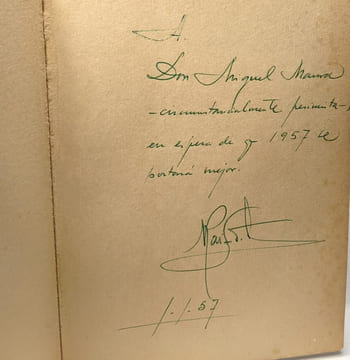 A.
Don Miguel Maura
-circunstancialmente pesimista-,
en espera de q 1957 le
portará mejor.
1.1.57